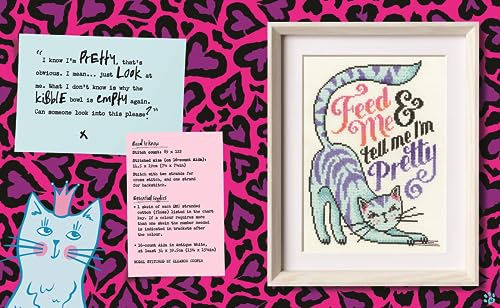 "I know I'm PREttY, that's
obvious. I mean... just Look at
me. What I don't know is why the
KibbLe bowl is EMPtY again.
Can someone look into this please?"
x
Need to Know
Stitch count:
Stitched size (on 16-count Aida):
Stitch with two strands for
cross stitch, and one strand
for backstitch.
Essential Supplies
• 1 skein of each DMC stranded
cotton (floss) listed in the chart
key. If a colour requires more
than one skein the number needed
is indicated in brackets after
the colour.
• 16-count Aida in Antique White,
at least
MODEL STITCHED BY ELEANOR COOPER
Feed
Me &
tell me I'm
Pretty